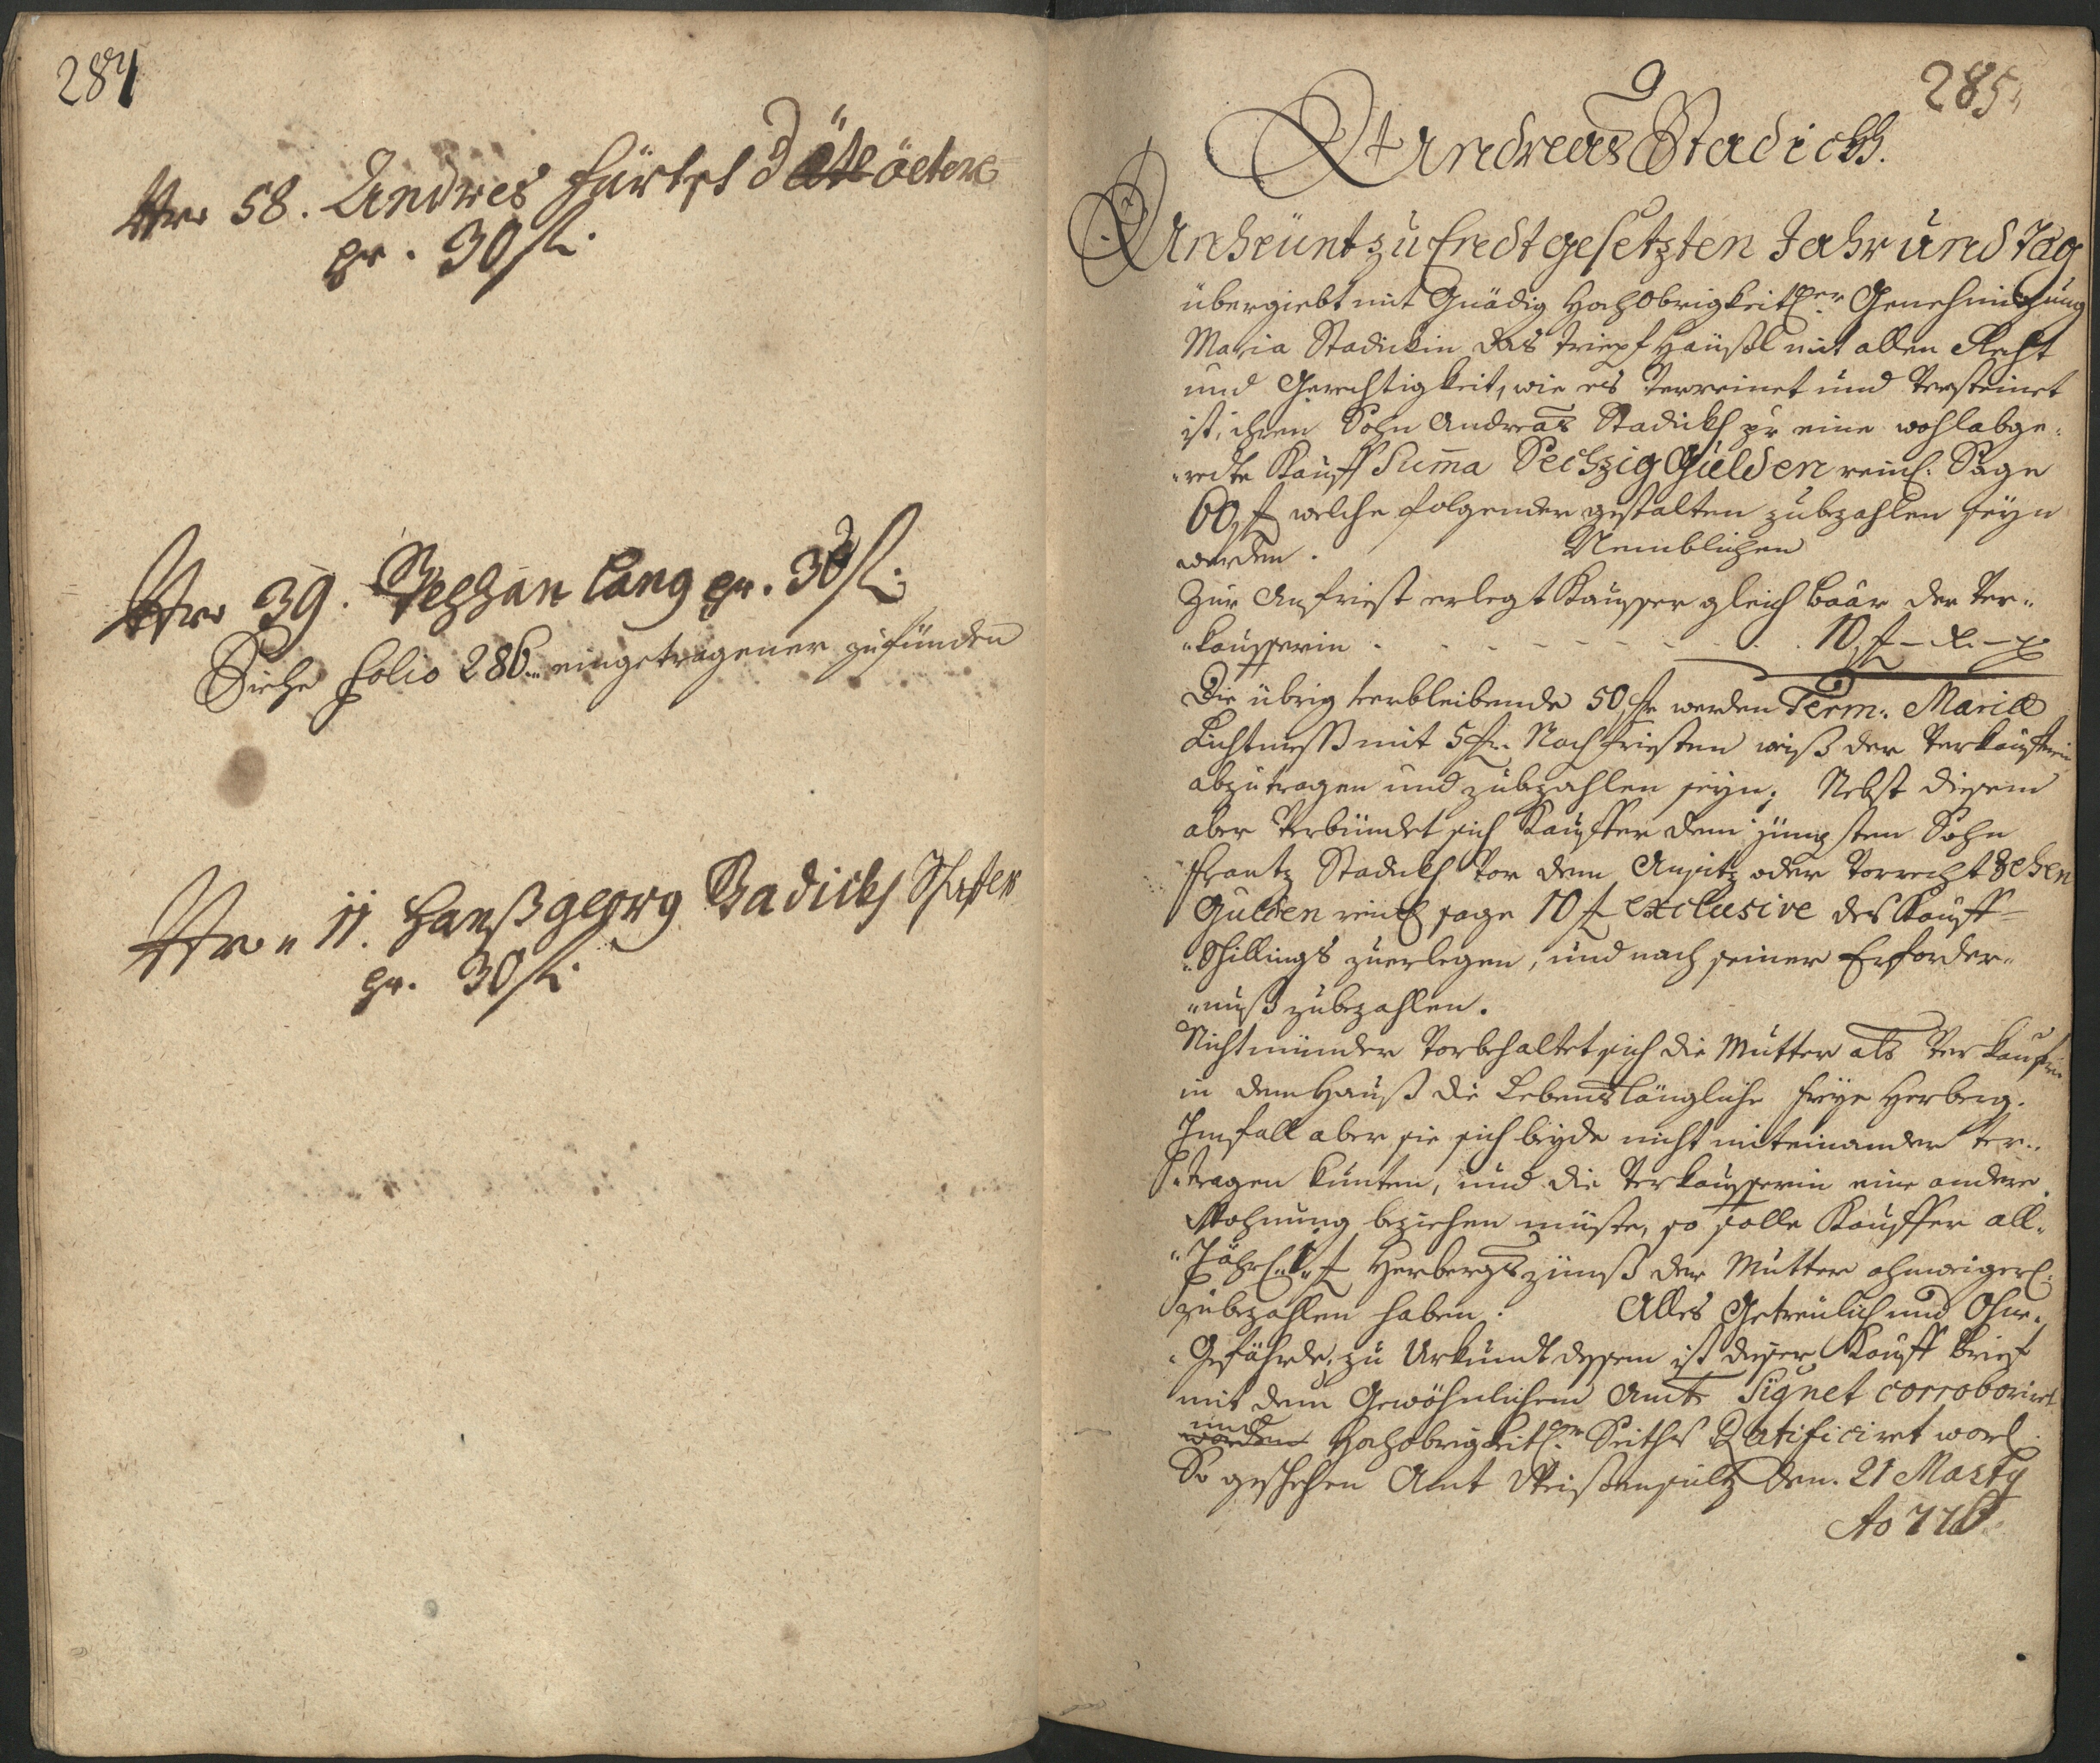 284
Nro 58. Andres Hürtel d ältere
pr. 30 fl.
Nro 39. Stephan Lang pr. 30 fl.
Siehe Folio 286 eingetragener zufünden
Nro 11. Hanß georg Stadickh
pr. 30 fl.
285.
Andreas Stadickh.
An heünt zu Endt gesetzten Jahr und Tag
übergiebt mit Gnädig Hochobrigkeitl.er Genehmigung
Maria Stadickin das Häußl mit allen Recht
und Gerechtigkeit, wie es verreinet und versteinet
ist, ihren Sohn Andreas Stadickh pr eine wohlabge-
redte Kauff Suma Sechzig Gulden reinl. Sage
60 fl welche folgender gestalten zubezahlen seyn
werden. Nemblichen
Zur Anfrist erlegt Kauffer gleich baar der Ver-
kaufferin 10 fl - x. - d
Die übrig verbleibende 50 fl werden Term. Mariæ
Lichtmess mit 5 fl. Nachfristen der Verkaufferin
abzutragen und zubezahlen seyn; Nebst diesem
aber verbündet sich Kauffer dem jüngsten Sohn
Frantz Stadickh vor dem Ansitz oder Vorrecht Zehen
Gulden reinl. sage 10 fl exclusive des Kauff-
Schillings zuerlegen, und nach seiner Erforder-
nuß zubezahlen.
Nicht minder vorbehaltet sich die Mutter als Verkaufferin
in dem Hauß die Lebenslängliche freye Herberg.
Imfall aber sie sich beyde nicht miteinander ver-
tragen kunten, und die Verkaufferin eine andere
Wohnung beziehen müste, so solle Kauffer all-
Jährl. 1 fl Herbergszünß der Mutter ohnweigerl.
zubezahlen haben. Alles Getreulich und Ohne
Gefährde, zu Urkundt dessen ist dieser Kauff brief
mit dem Gewöhnlichem Amts Signet corroboriret
und
worden Hochobrigkeitl.en Seiths Ratificiret word.
So geschehen Amt Weißensultz den. 21 Marty
Ao 776